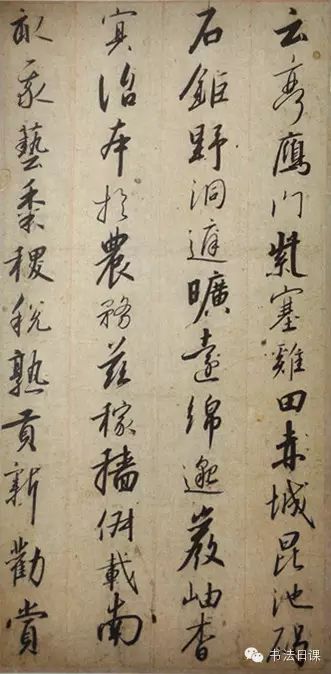 云亭鴈门紫塞雞田赤城昆池碣
石鉅野洞遠曠遠绵邈巖岫杳
冥治本於農務兹稼穑俶載南
畝我藝黍稷税熟貢新勸賞
书法日课